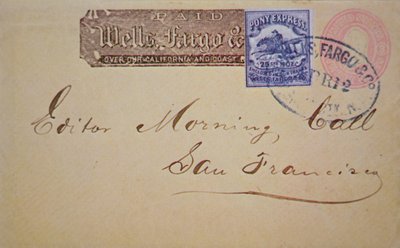 PAID
Wells, Fargo &
OVER OUR CALIFORNIA AND COAST
PONY EXPRESS
WELLS, FARGO & CO
Editor Morning Call
San Francisco